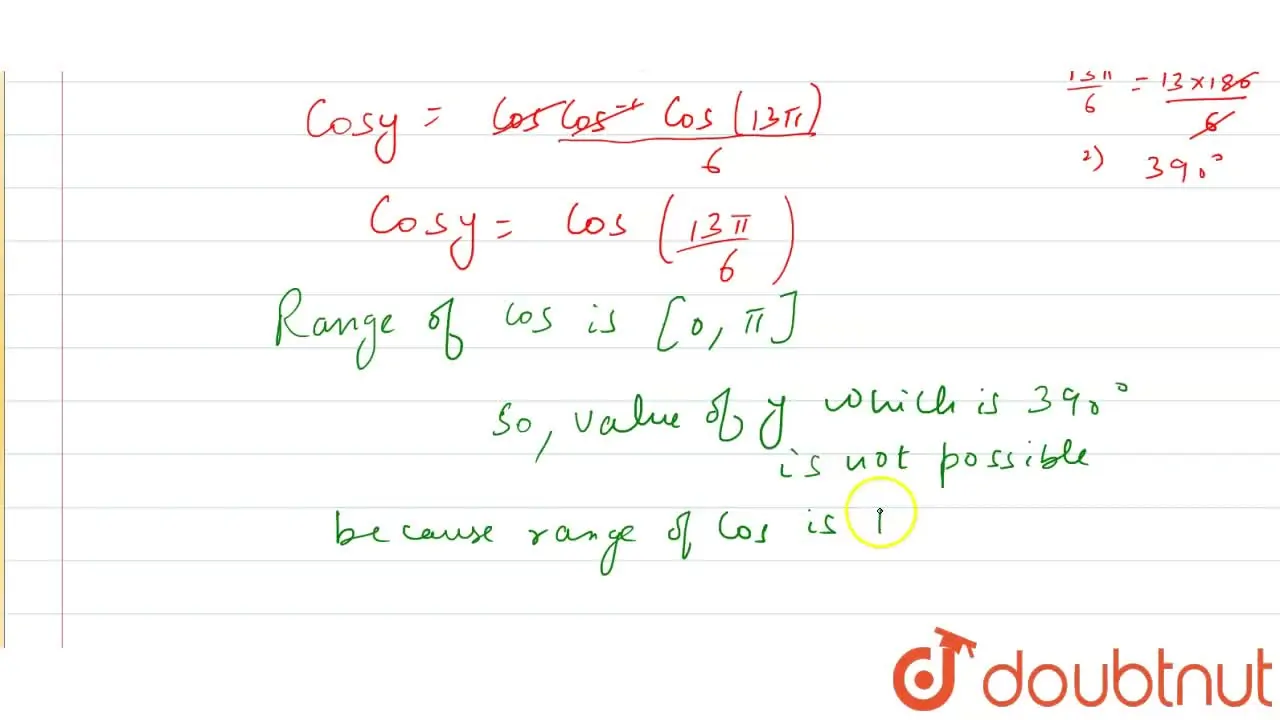 Cosy = Cos Cos⁻¹ Cos (13π)/6
13π/6 = 13×180/6
2) 390°
Cosy = Cos (13π/6)
Range of cos is [0, π]
so, value of y which is 390°
is not possible
because range of Cos is
doubtnut